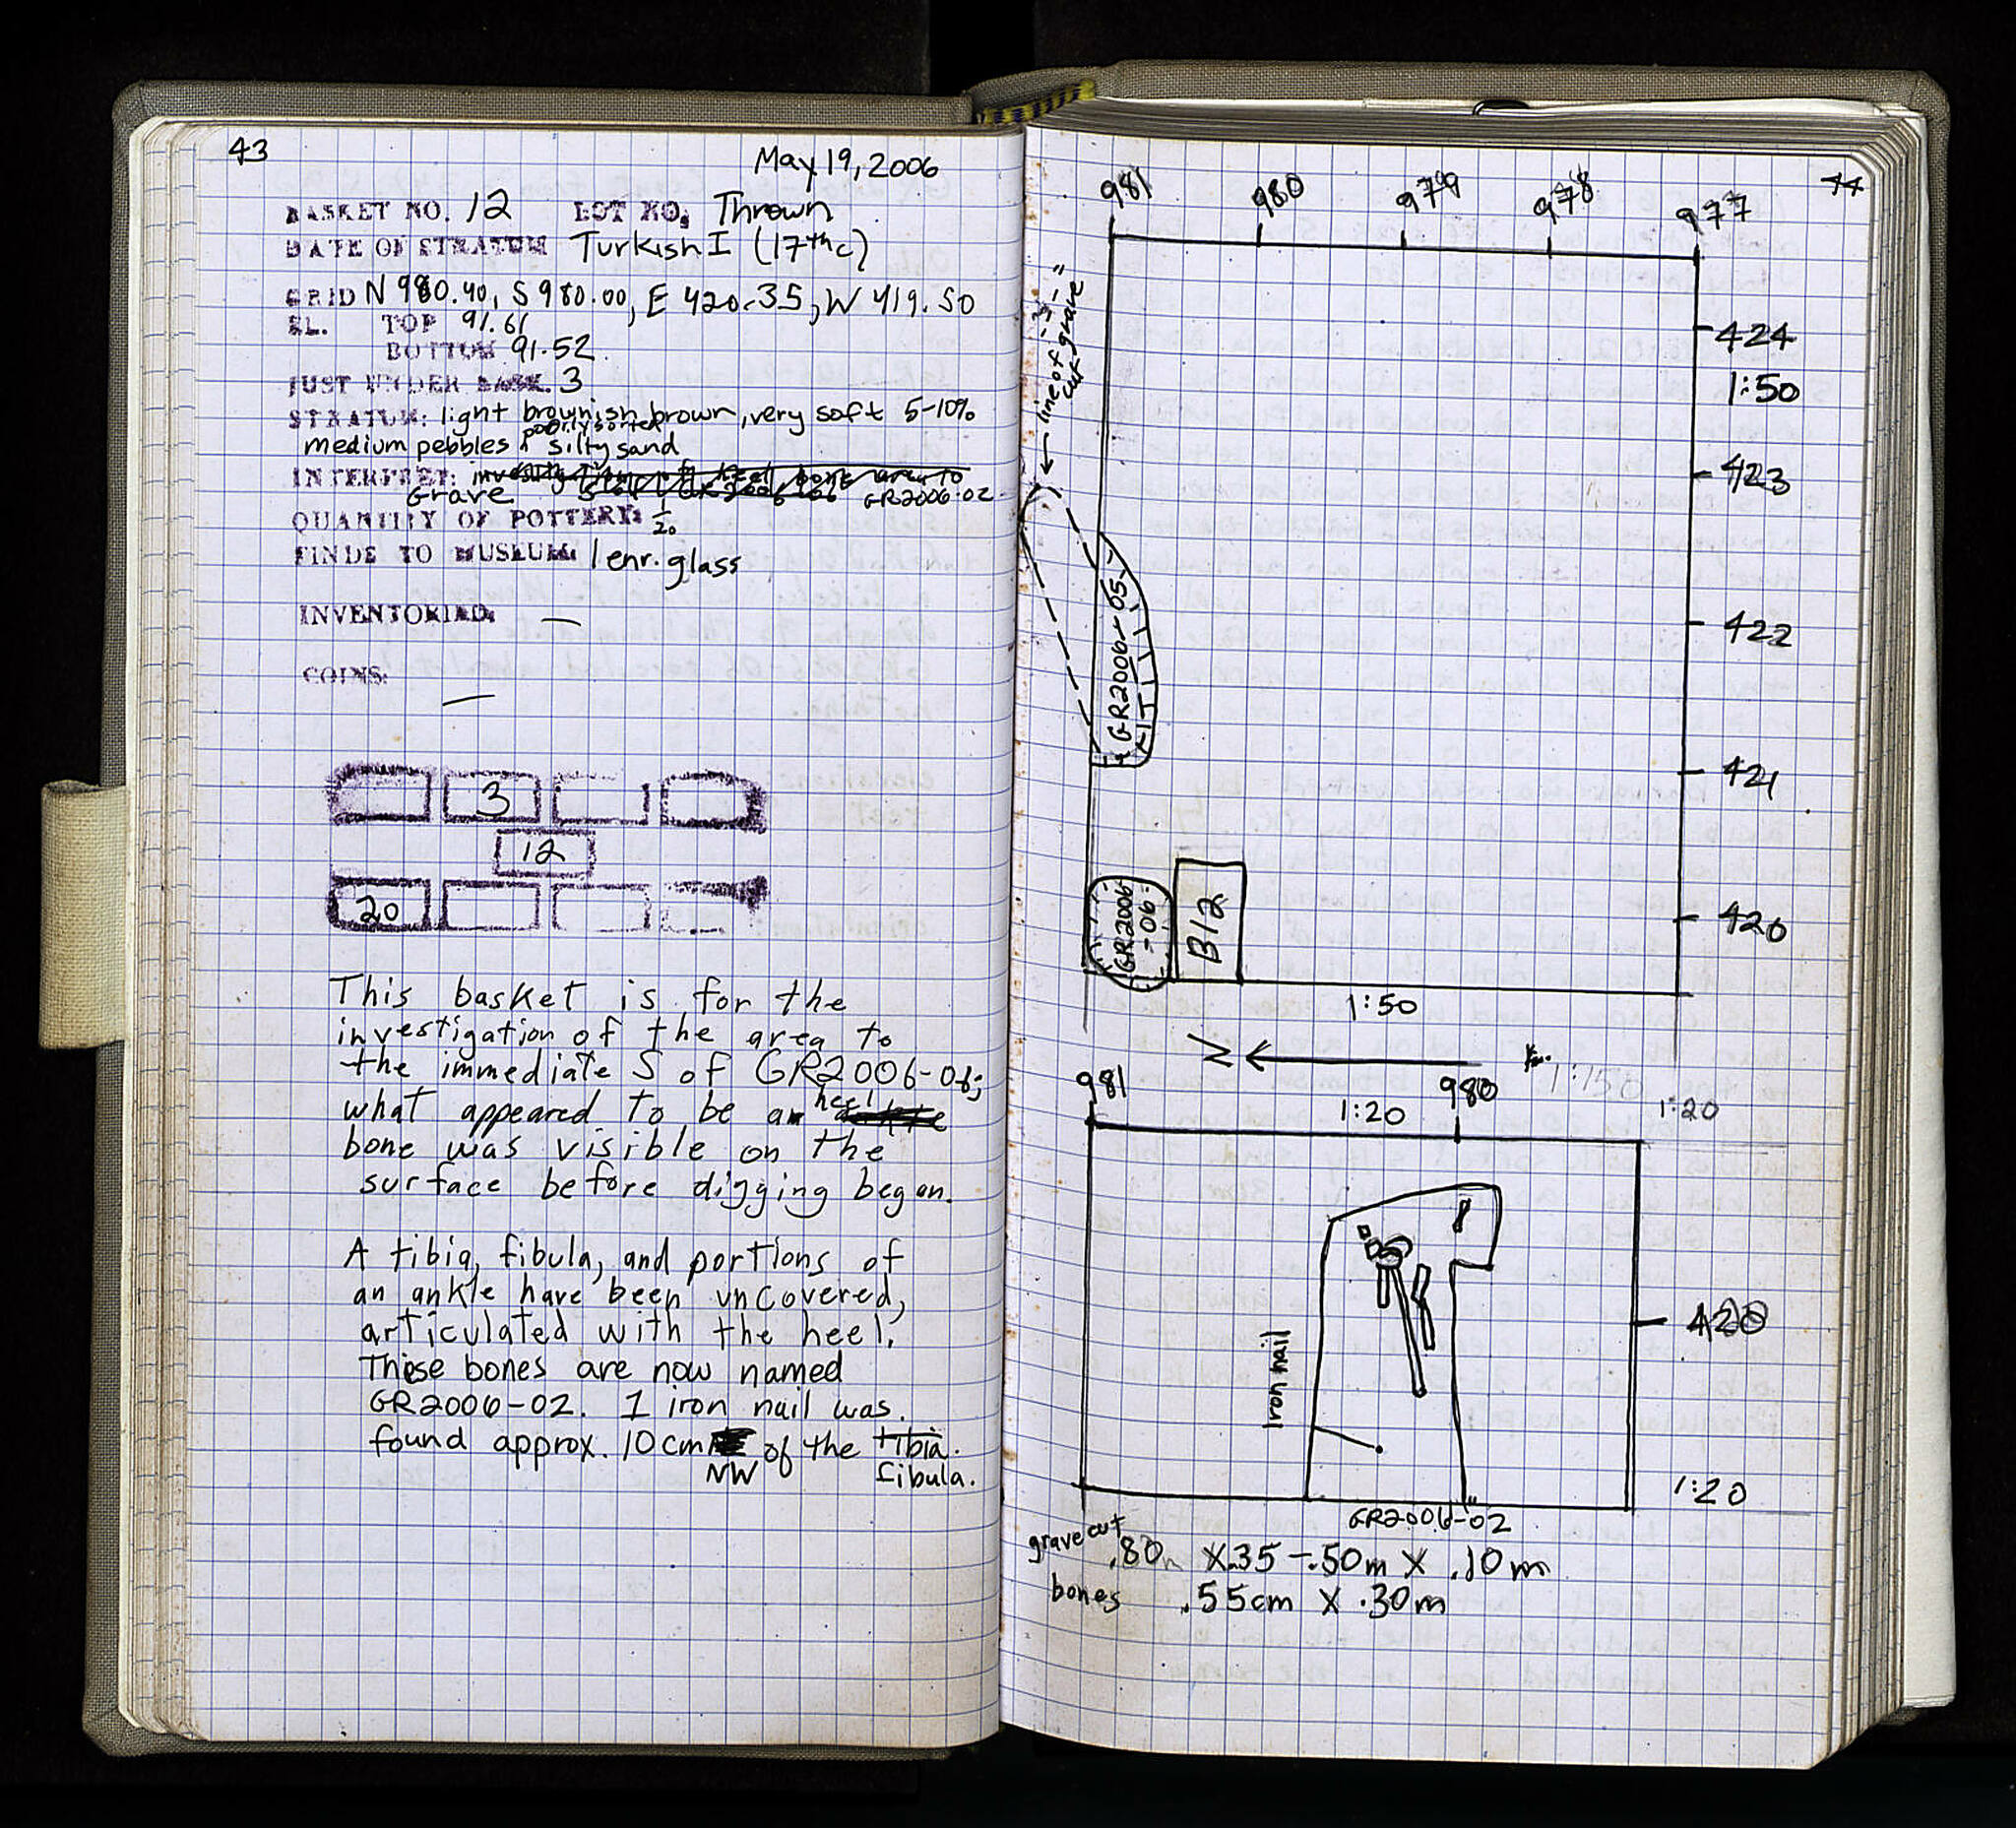 43
May 19, 2006
BASKET NO. 12 LOT NO. Thrown
DATE OF STRATUM Turkish I (17th c)
GRID N 980.40, S 980.00, E 420.35, W 419.50
EL. TOP 91.61
BOTTOM 91.52
JUST UNDER BASK. 3
STRATUM: light brownish brown, very soft 5-10%
medium pebbles poorly sorted silty sand
INTERPRET:
Grave GR2006-02
QUANTITY OF POTTERY: 1/20
FINDS TO MUSEUM: 1 enr. glass
INVENTORIED: —
COINS: —
3
12
20
This basket is for the
investigation of the area to
the immediate S of GR2006-06;
what appeared to be a heel
bone was visible on the
surface before digging began.
A tibia, fibula, and portions of
an ankle have been uncovered,
articulated with the heel.
These bones are now named
GR2006-02. 1 iron nail was
found approx. 10cm NW of the tibia.
fibula.
44
981 980 979 978 977
line of
cut grave
424
1:50
423
422
421
420
GR2006-05
GR2006
-06
B12
1:50
N
1:150
981 980
1:20 1:20
420
Iron nail
1:20
GR2006-02
grave cut .80m X .35-.50m X .10m
bones .55cm X .30m